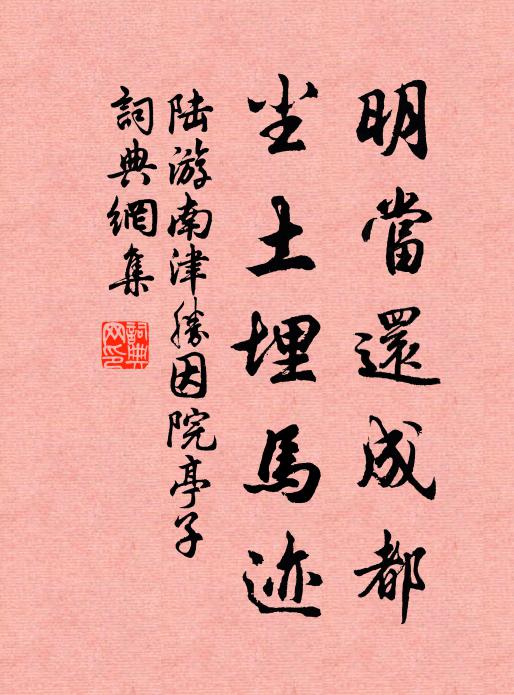 明當還成都
尘土埋馬迹
陆游南津勝因院亭子
詞典網集
詞典网印